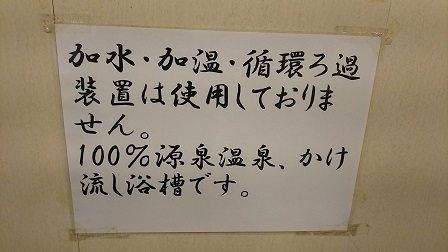 加水・加温・循環ろ過
装置は使用しておりま
せん。
100%源泉温泉、かけ
流し浴槽です。